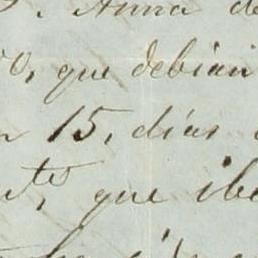 Anna de
0, que debian
15, dias
tes, que iba